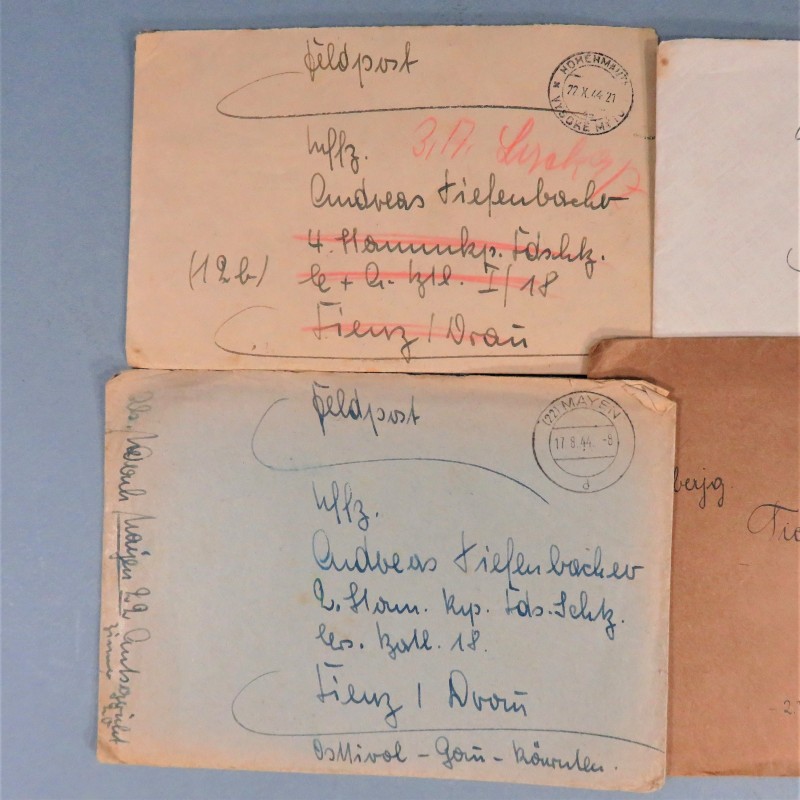 Feldpost
HOHENMAUTH
22.X.44-21
VYSOKÉ MÝTO
Uffz.
Andreas Tiefenbacher
4. Stammkp. Ldschtz.
(12b)
E + A. Btl. I/18
Lienz / Drau
Feldpost
(22) MAYEN
17.8.44.-8
d
Uffz.
Andreas Tiefenbacher
2. Stam. Kp. Lds. Schtz.
Ers. Batl. 18.
Lienz / Drau
Osttirol - Gau - Kärnten.
Mayen 22 Amtsgericht
berjg.